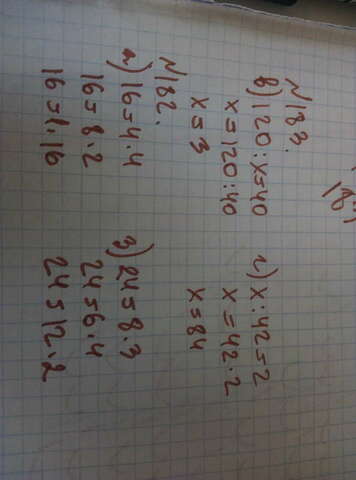 181
N183.
в) 120:x=40 г) x:42=2
x=120:40 x=42·2
x=3 x=84
N182.
а) 16=4·4 з) 24=8·3
16=8·2 24=6·4
16=1·16 24=12·2